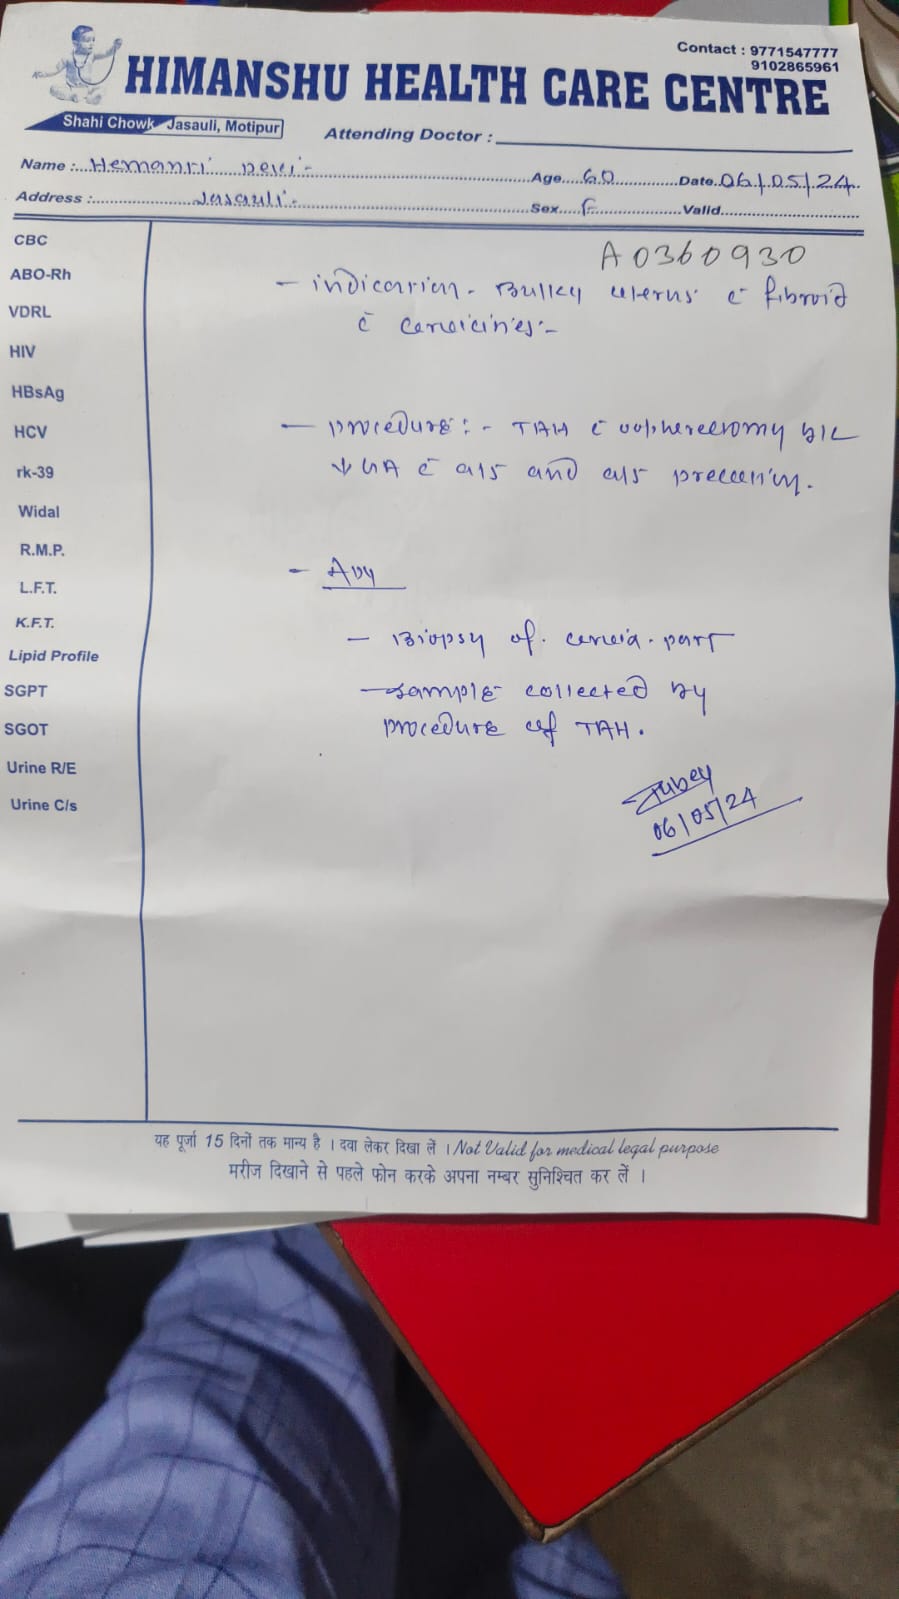 Contact : 9771547777
9102865961
HIMANSHU HEALTH CARE CENTRE
Shahi Chowk Jasauli, Motipur
Attending Doctor :
Name : Hemanti Devi Age 60 Date 06/05/24
Address : Jasauli Sex F Valid
A0360930
CBC
ABO-Rh
VDRL
HIV
HBsAg
HCV
rk-39
Widal
R.M.P.
L.F.T.
K.F.T.
Lipid Profile
SGPT
SGOT
Urine R/E
Urine C/s
- indication - Bulky uterus c̄ fibroid
c̄
- procedure : - TAH c̄ oophorectomy B/L
↓ c̄ a/s and a/s
- Adv
- Biopsy of part
- sample collected by
procedure of TAH.
Dubey
06/05/24
यह पूर्जा 15 दिनों तक मान्य है । दवा लेकर दिखा लें । Not Valid for medical legal purpose
मरीज दिखाने से पहले फोन करके अपना नम्बर सुनिश्चित कर लें ।